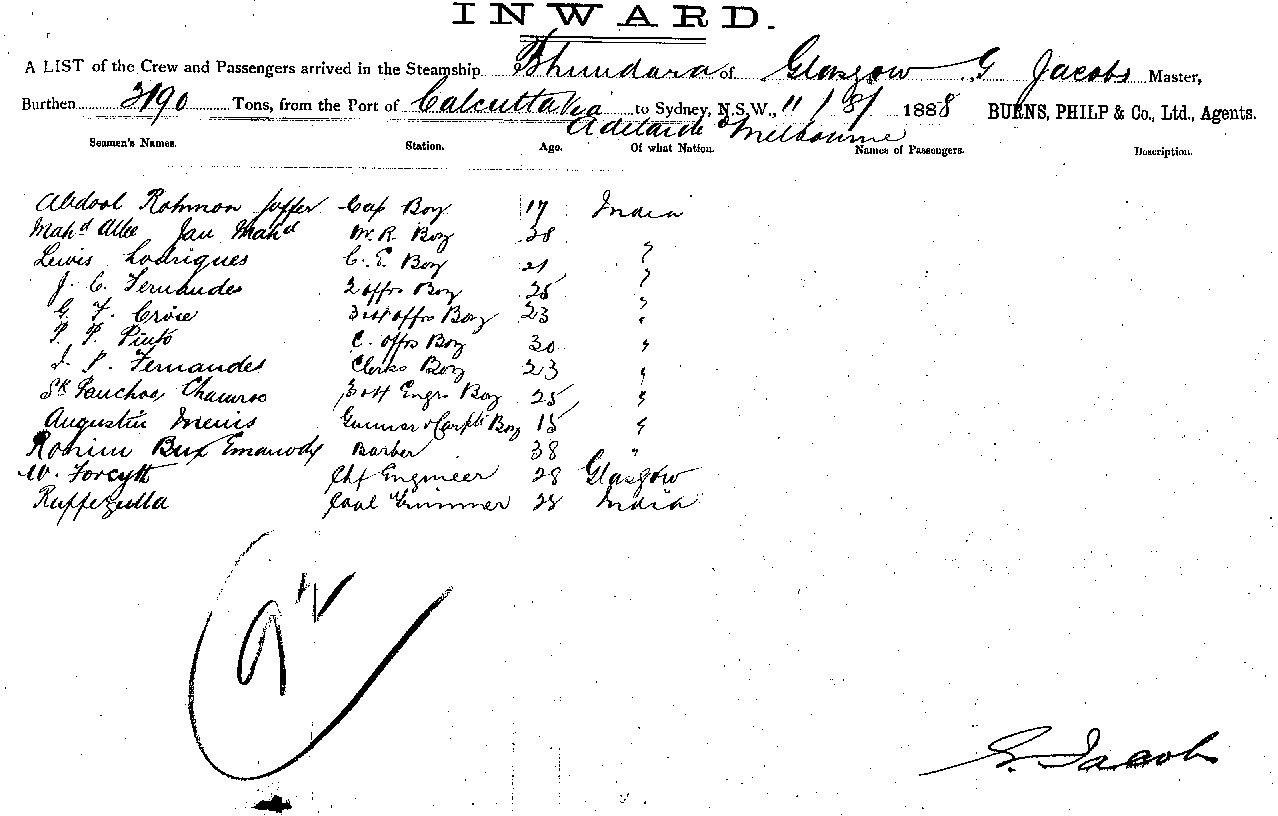 INWARD.
A LIST of the Crew and Passengers arrived in the Steamship Bhundara of Glasgow G Jacobs Master,
Burthen 2190 Tons, from the Port of Calcutta via to Sydney, N.S.W., 11 / 8 / 1888 BURNS, PHILP & Co., Ltd., Agents.
Adelaide & Melbourne
Seamen's Names. Station. Age. Of what Nation. Names of Passengers. Description.
Abdool Rohmon Joffer Cap Boy 17 India
Mahd Allee Jan Mahd M. R. Boy 28 "
Lewis Lodrigues C. E. Boy 21 "
J. C. Fernandes 2 offrs Boy 25 "
G. F. Croise 3rd offrs Boy 23 "
P. P. Pinto C. offrs Boy 30 "
J. P. Fernandes Clerks Boy 23 "
Sk 3rd Engrs Boy 25 "
Augustin Menis Gunner & Carptr Boy 15 "
Rohim Bux Barber 38 "
W. Forsyth Chf Engineer 28 Glasgow
Ruffezulla Coal Trimmer 28 India
G. Jacobs